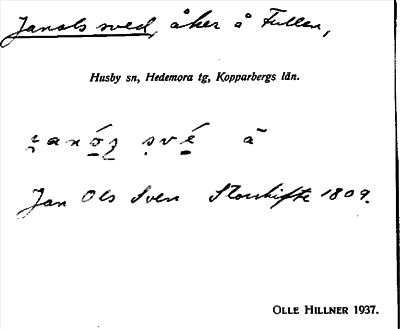 Janols sved, åker å Fullen,
Husby sn, Hedemora tg, Kopparbergs län.
Jan Ols Sven Storskifte 1809.
OLLE HILLNER 1937.